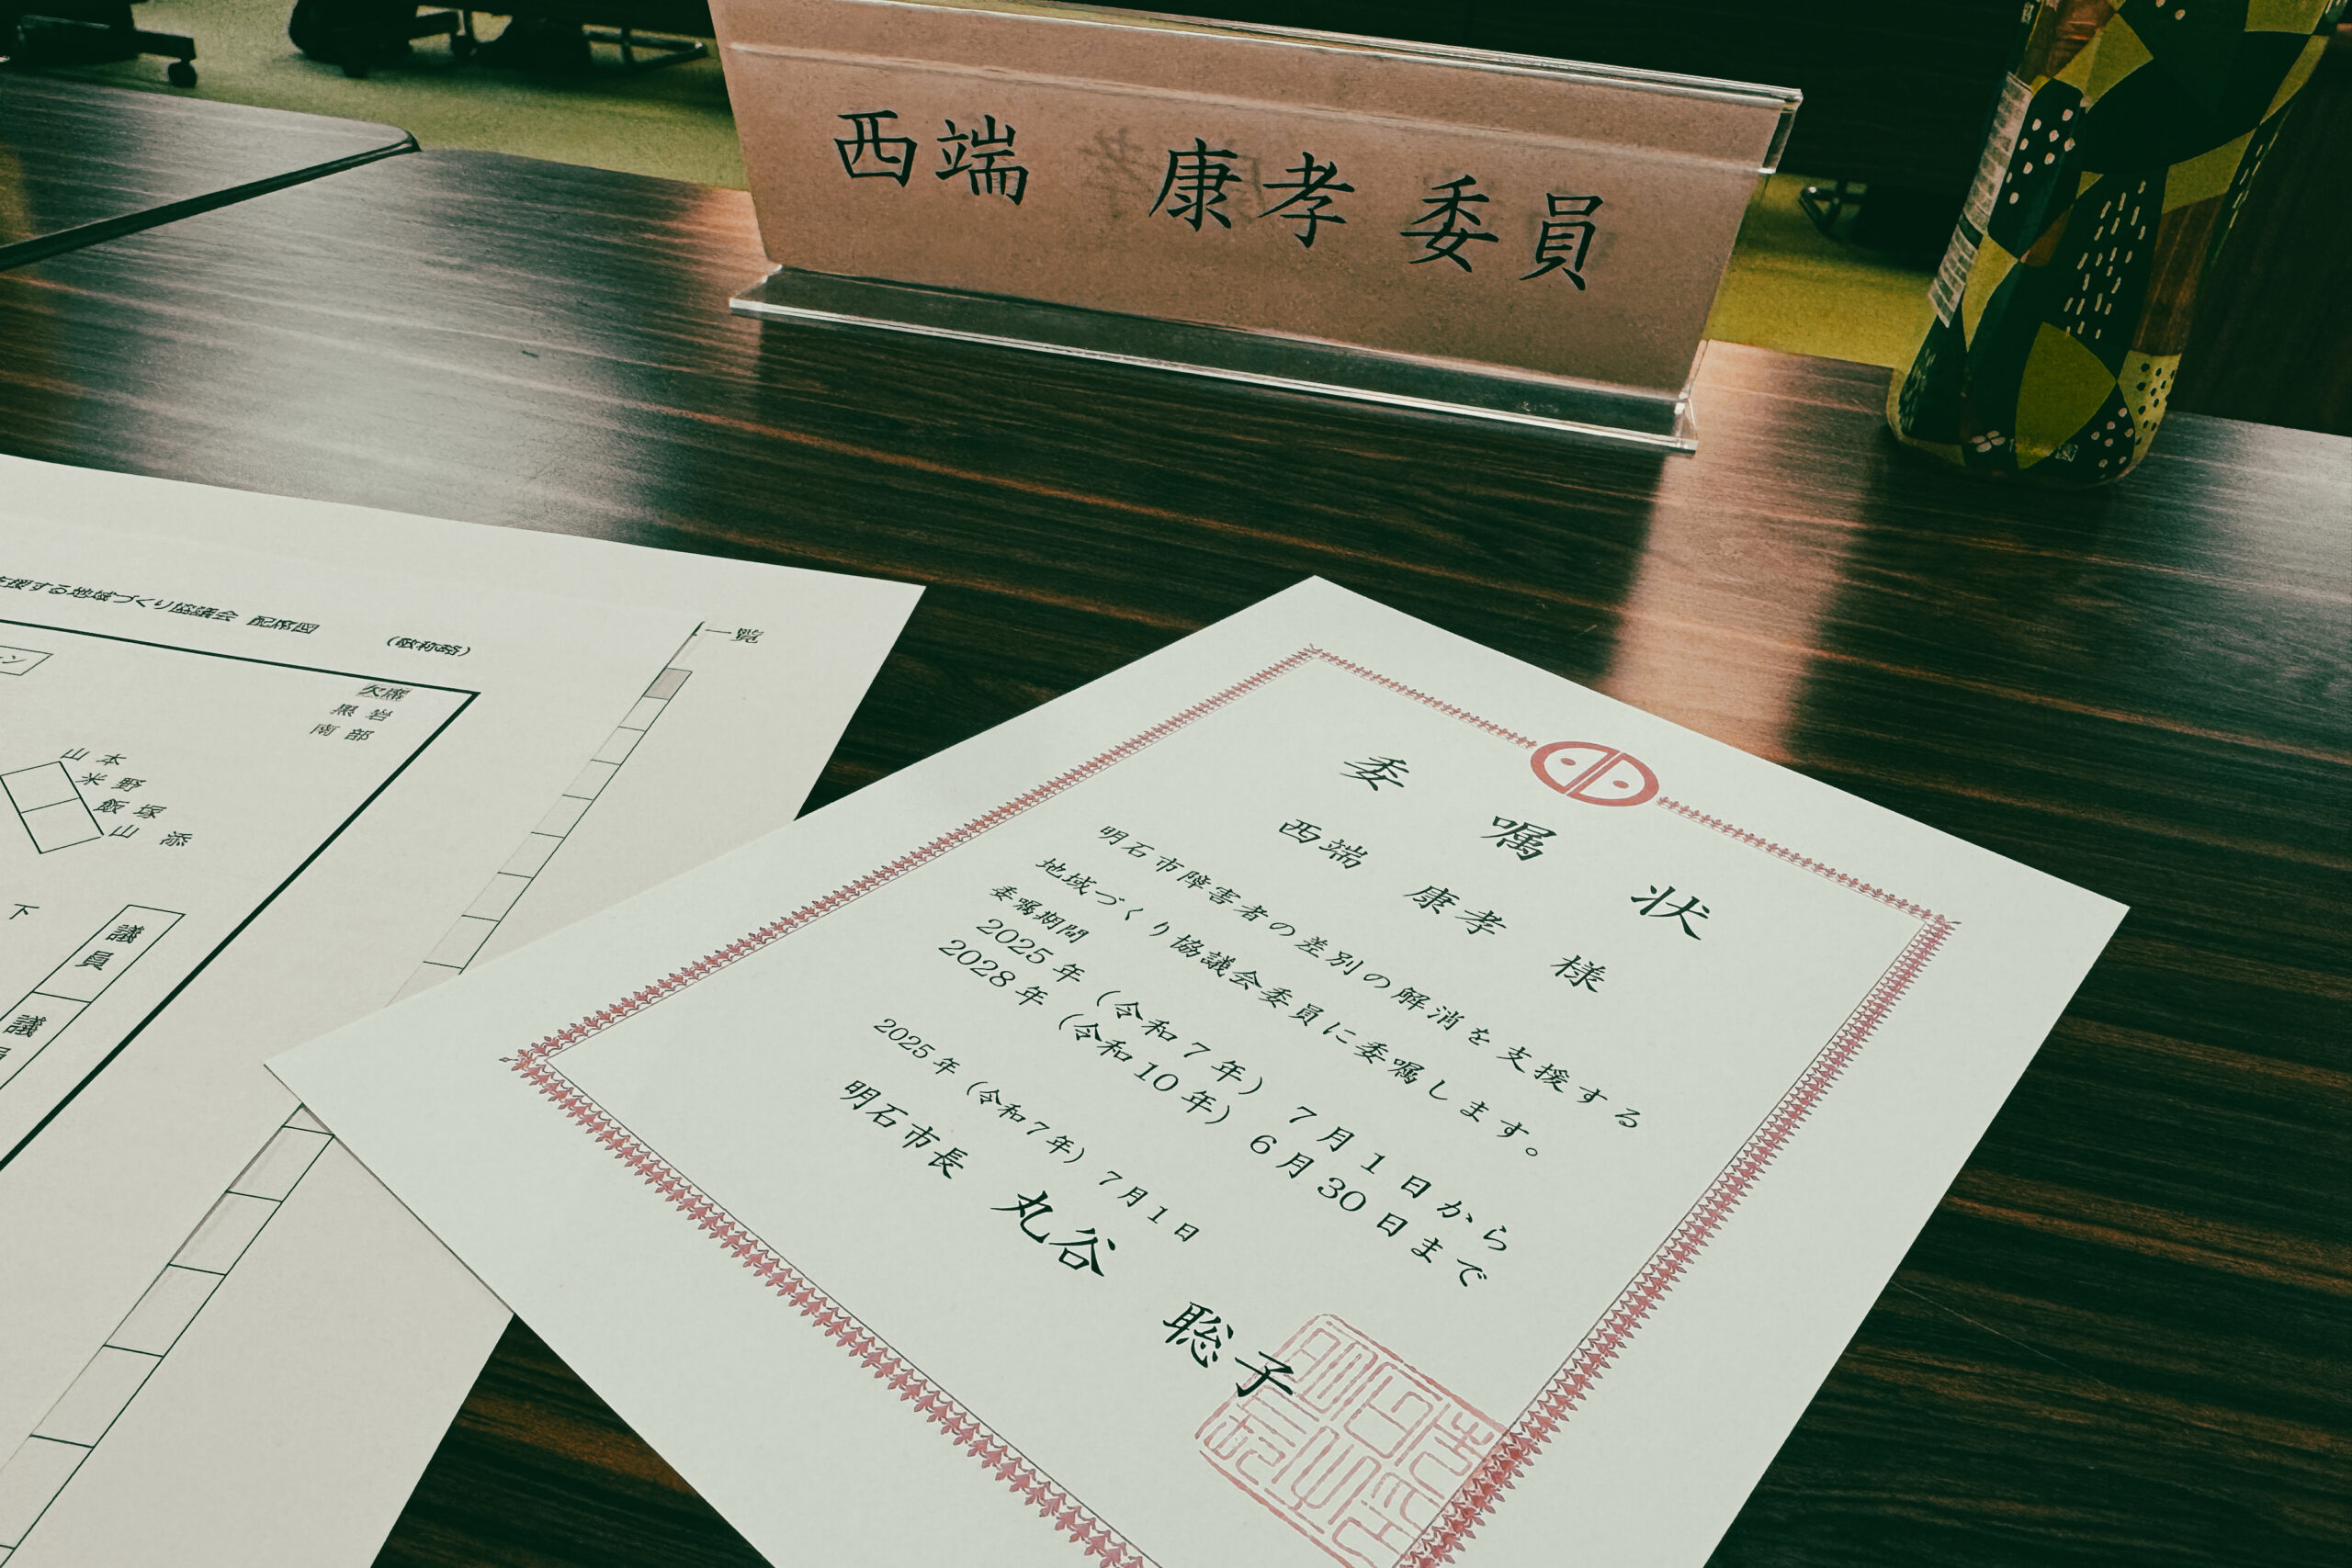 西端 康孝 委員
支援する地域づくり協議会 配席図 (敬称略)
一覧
ン
欠席
黒岩
南部
山本
米野
飯塚
山添
下
議員
議員
委嘱状
西端 康孝 様
明石市障害者の差別の解消を支援する
地域づくり協議会委員に委嘱します。
委嘱期間
2025年(令和7年) 7月1日から
2028年(令和10年) 6月30日まで
2025年(令和7年) 7月1日
明石市長 丸谷 聡子